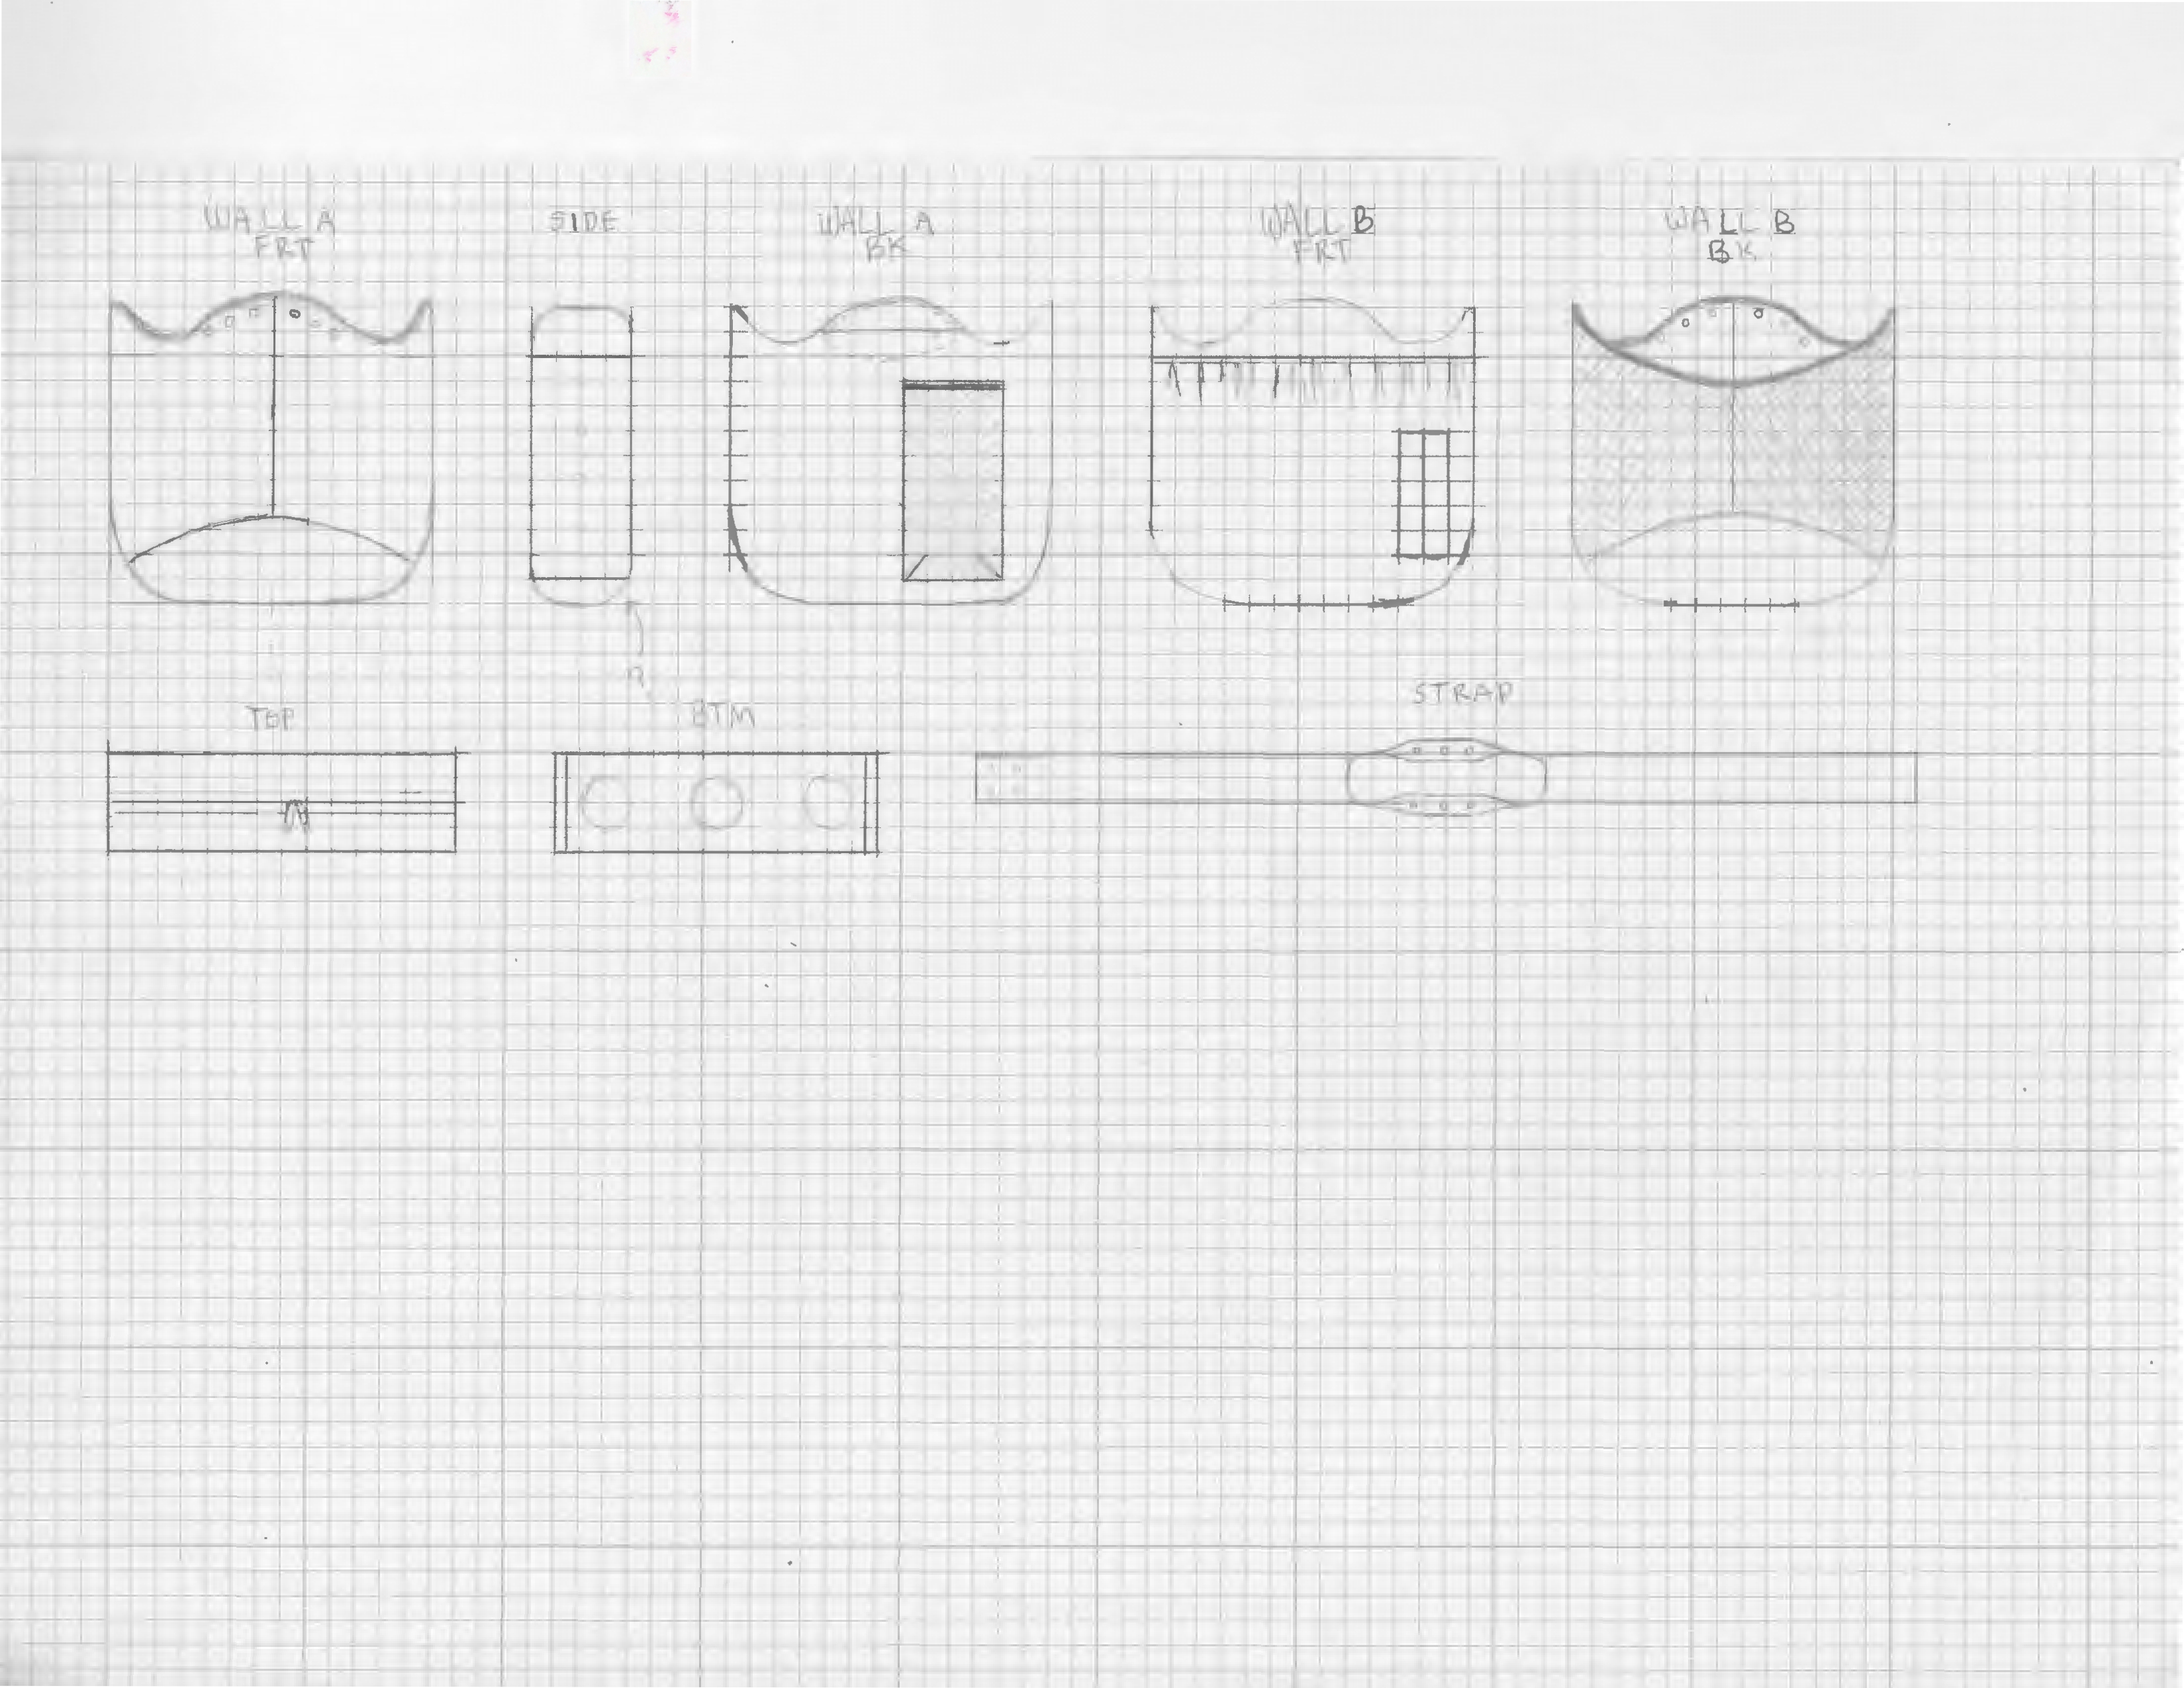 WALL A
FRT
SIDE
WALL A
BK
WALL B
FRT
WALL B
BK
TOP
BTM
STRAP